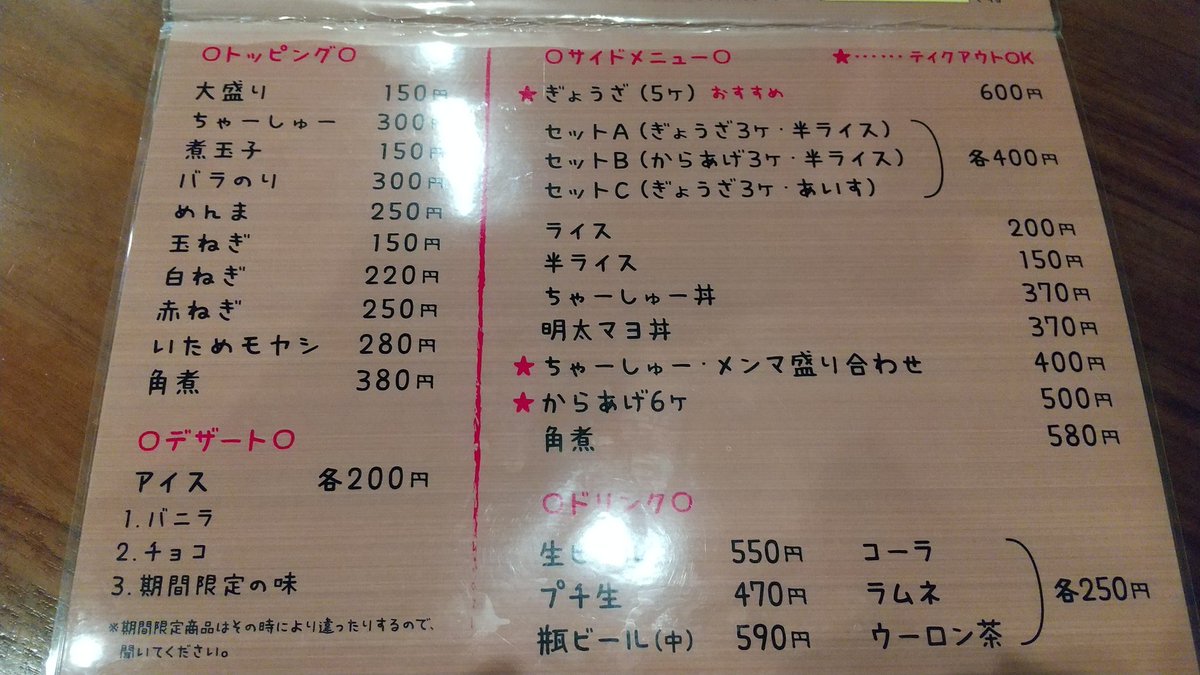 〇トッピング〇
大盛り 150円
ちゃーしゅー 300円
煮玉子 150円
バラのり 300円
めんま 250円
玉ねぎ 150円
白ねぎ 220円
赤ねぎ 250円
いためモヤシ 280円
角煮 380円
〇デザート〇
アイス 各200円
1.バニラ
2.チョコ
3.期間限定の味
※期間限定商品はその時により違ったりするので、
聞いてください。
〇サイドメニュー〇 ★……テイクアウトOK
★ぎょうざ(5ヶ)おすすめ 600円
セットA(ぎょうざ3ヶ・半ライス)
セットB(からあげ3ヶ・半ライス) 各400円
セットC(ぎょうざ3ヶ・あいす)
ライス 200円
半ライス 150円
ちゃーしゅー丼 370円
明太マヨ丼 370円
★ちゃーしゅー・メンマ盛り合わせ 400円
★からあげ6ヶ 500円
角煮 580円
〇ドリンク〇
550円 コーラ
プチ生 470円 ラムネ 各250円
瓶ビール(中) 590円 ウーロン茶